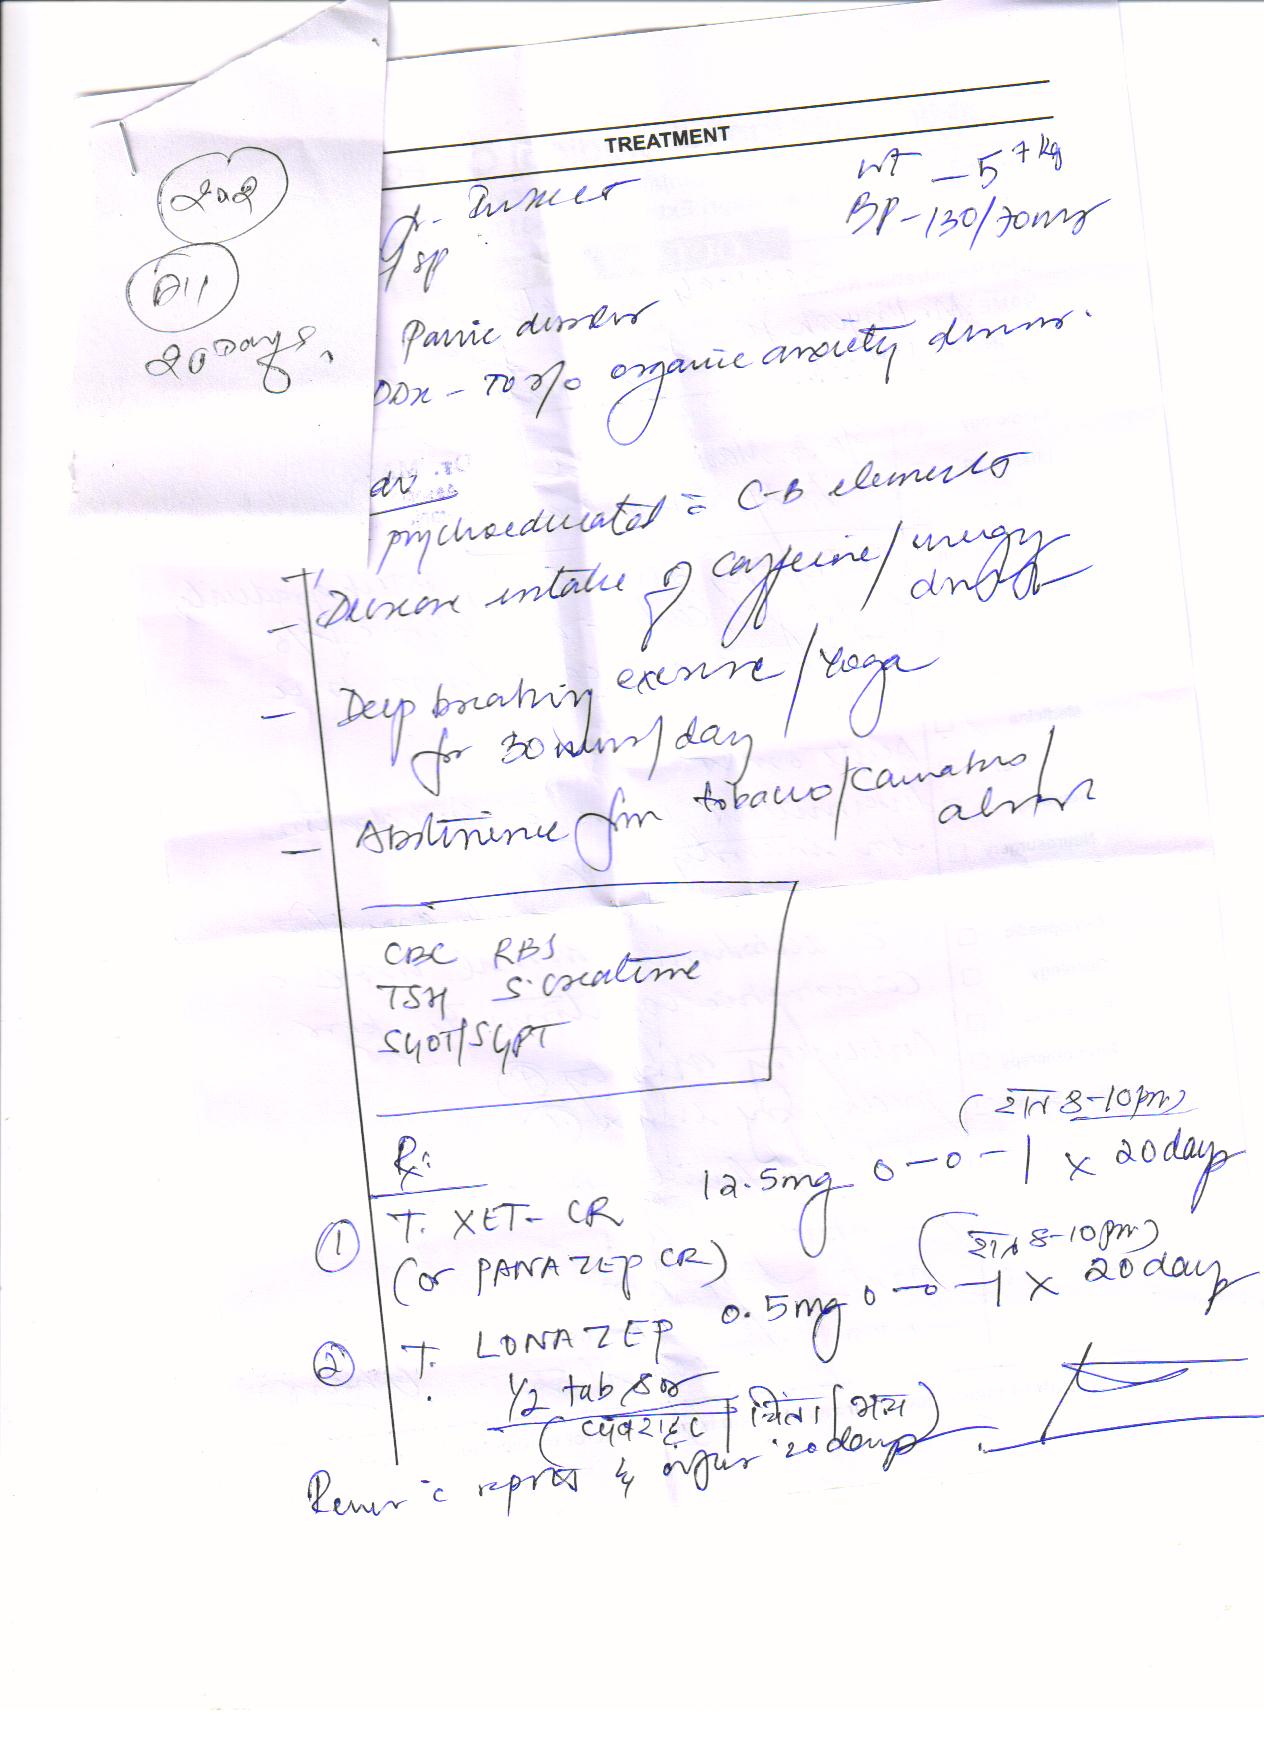 TREATMENT
202
D11
20 Days.
Wt - 57 kg
BP - 130/70
Panic disorder
DDx - To r/o organic anxiety
psychoeducated c̄ C-B elements
- Decrease intake of caffeine/energy
drinks
- Deep breathing exercise/Yoga
for 30 mins/day
- Abstinence from tobacco/Cannabis/
alcohol
CBC RBS
TSH S. creatinine
SGOT/SGPT
Rx
(रात 8-10pm)
① T. XET- CR 12.5mg 0-0-1 x 20 days
(or PANAZEP CR)
(रात 8-10pm)
② T. LONAZEP 0.5mg 0-0-1 x 20 days
1/2 tab SOS
(घबराहट/चिंता/भय)
Review c̄ reports & 20 days